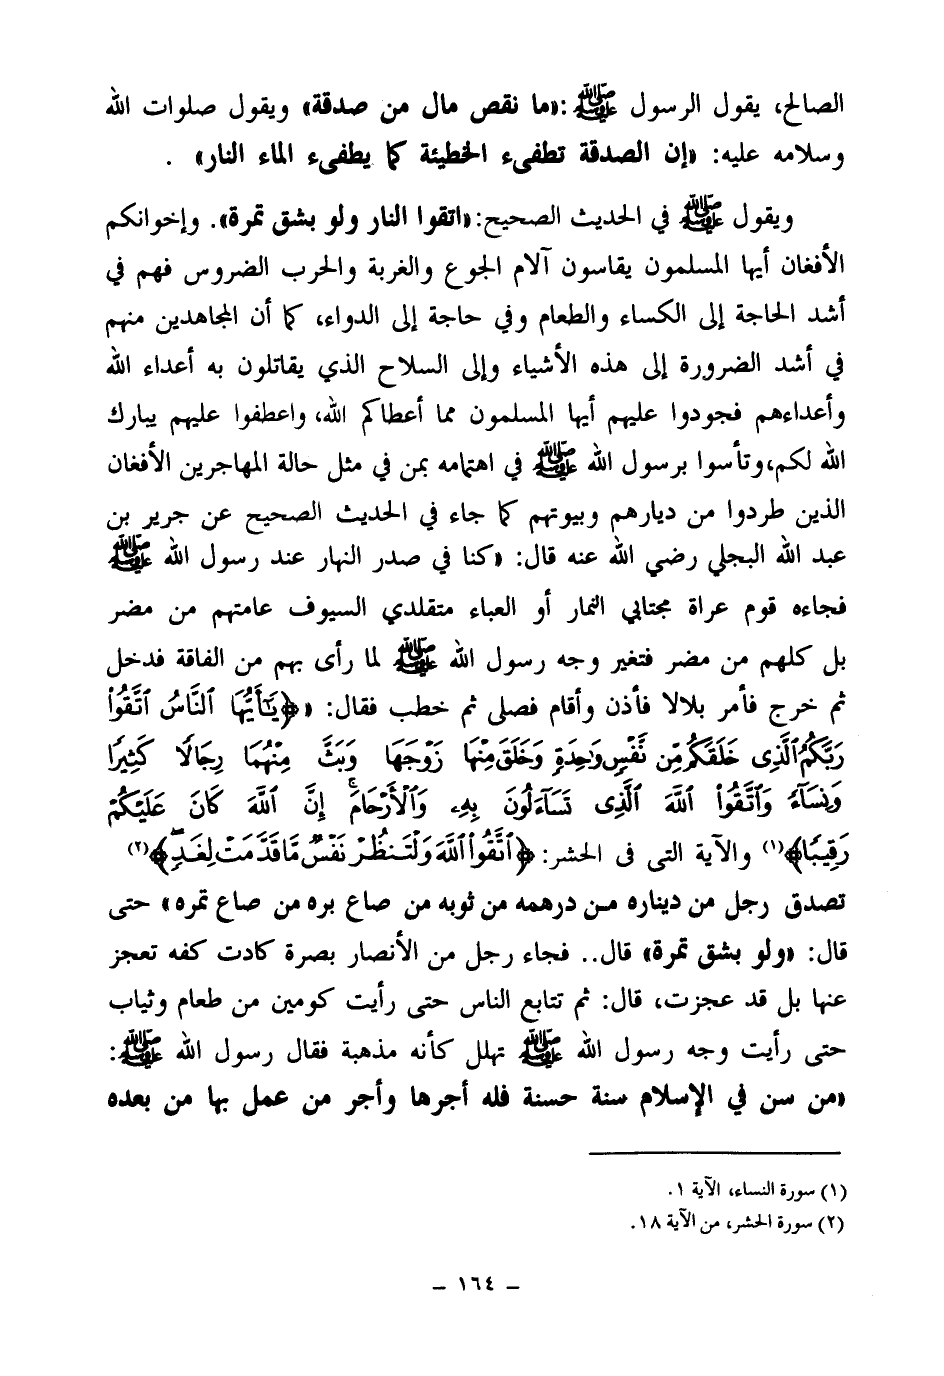 الصالح، يقول الرسول ﷺ :«ما نقص مال من صدقة» ويقول صلوات الله
وسلامه عليه: «إن الصدقة تطفيء الخطيئة كما يطفيء الماء النار» .
ويقول ﷺ في الحديث الصحيح:«اتقوا النار ولو بشق تمرة». وإخوانكم
الأفغان أيها المسلمون يقاسون آلام الجوع والغربة والحرب الضروس فهم في
أشد الحاجة إلى الكساء والطعام وفي حاجة إلى الدواء، كما أن المجاهدين منهم
في أشد الضرورة إلى هذه الأشياء وإلى السلاح الذي يقاتلون به أعداء الله
وأعداءهم فجودوا عليهم أيها المسلمون مما أعطاكم الله، واعطفوا عليهم يبارك
الله لكم،وتأسوا برسول الله ﷺ في اهتمامه بمن في مثل حالة المهاجرين الأفغان
الذين طردوا من ديارهم وبيوتهم كما جاء في الحديث الصحيح عن جرير بن
عبد الله البجلي رضي الله عنه قال: «كنا في صدر النهار عند رسول الله ﷺ
فجاءه قوم عراة مجتابي النمار أو العباء متقلدي السيوف عامتهم من مضر
بل كلهم من مضر فتغير وجه رسول الله ﷺ لما رأى بهم من الفاقة فدخل
ثم خرج فأمر بلالا فأذن وأقام فصلى ثم خطب فقال: «﴿يَٰٓأَيُّهَا ٱلنَّاسُ ٱتَّقُوا۟
رَبَّكُمُ ٱلَّذِى خَلَقَكُم مِّن نَّفْسٍ وَٰحِدَةٍ وَخَلَقَ مِنْهَا زَوْجَهَا وَبَثَّ مِنْهُمَا رِجَالًا كَثِيرًا
وَنِسَآءً وَٱتَّقُوا۟ ٱللَّهَ ٱلَّذِى تَسَآءَلُونَ بِهِۦ وَٱلْأَرْحَامَ ۚ إِنَّ ٱللَّهَ كَانَ عَلَيْكُمْ
رَقِيبًا﴾(١) والآية التي في الحشر: ﴿ٱتَّقُوا۟ ٱللَّهَ وَلْتَنظُرْ نَفْسٌ مَّا قَدَّمَتْ لِغَدٍ﴾(٢)
تصدق رجل من ديناره مـن درهمه من ثوبه من صاع بره من صاع تمره» حتى
قال: «ولو بشق تمرة» قال.. فجاء رجل من الأنصار بصرة كادت كفه تعجز
عنها بل قد عجزت، قال: ثم تتابع الناس حتى رأيت كومين من طعام وثياب
حتى رأيت وجه رسول الله ﷺ تهلل كأنه مذهبة فقال رسول الله ﷺ:
«من سن في الإسلام سنة حسنة فله أجرها وأجر من عمل بها من بعده
(١) سورة النساء، الآية ١.
(٢) سورة الحشر، من الآية ١٨.
– ١٦٤ –